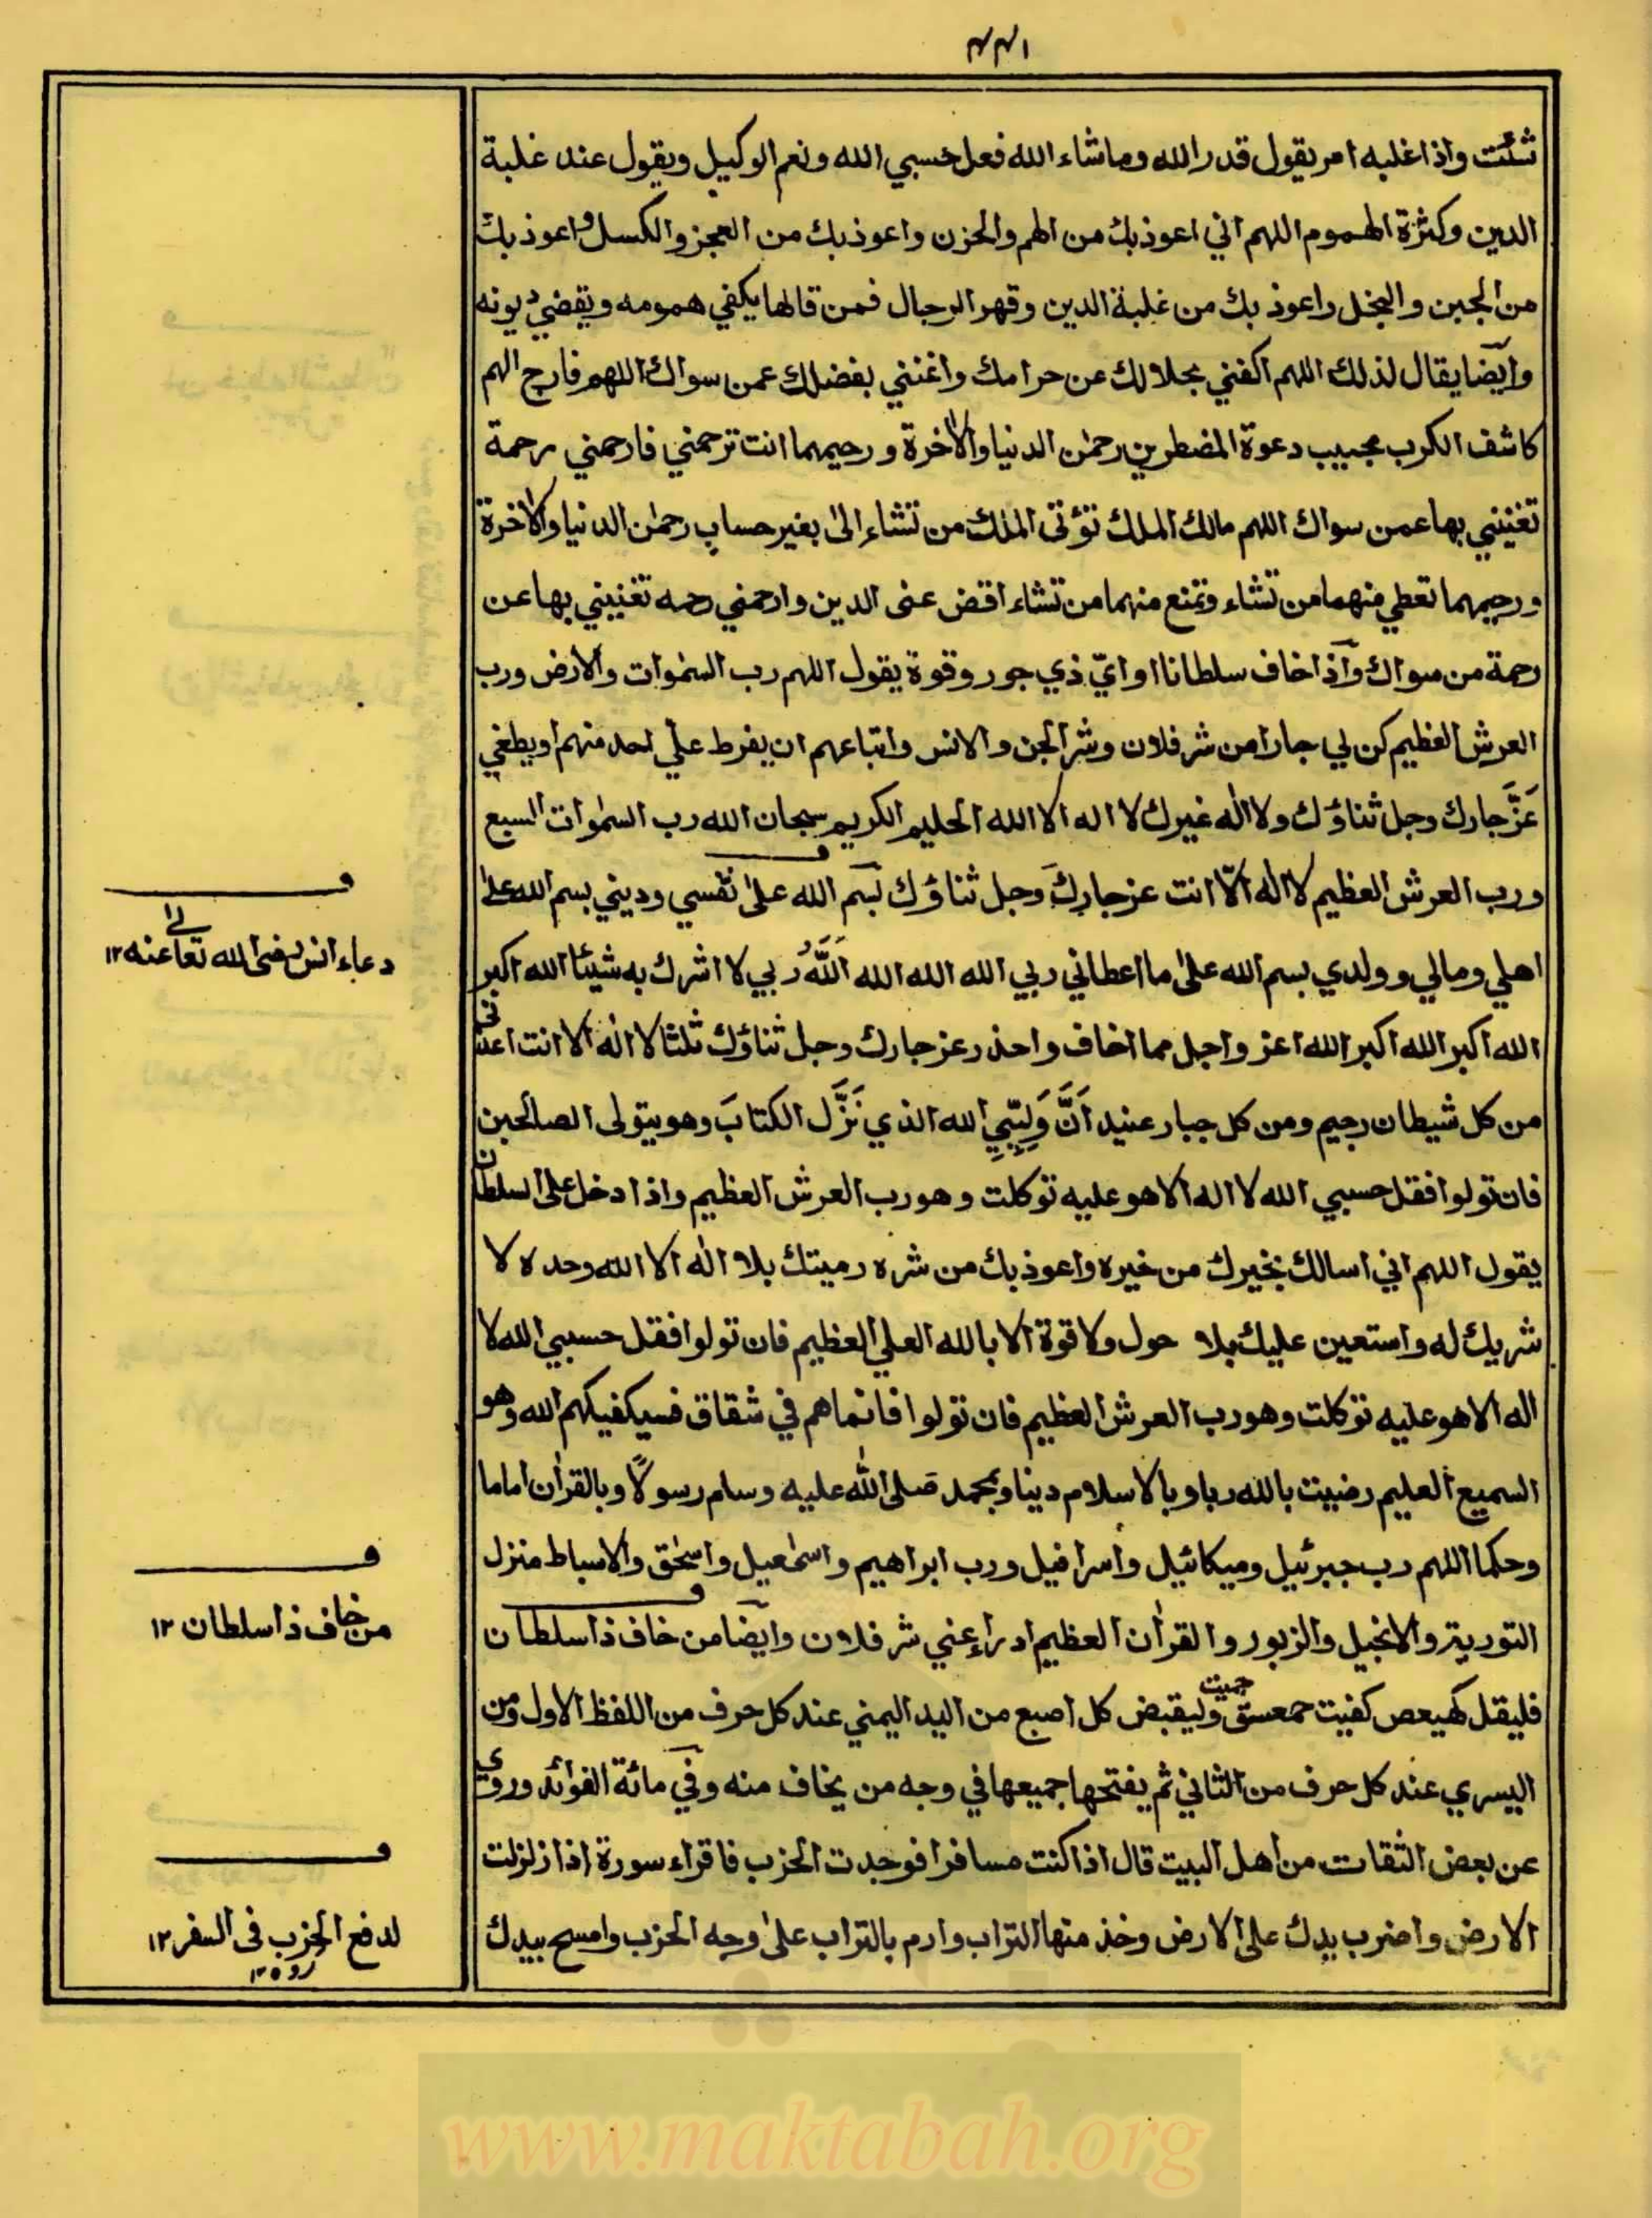 ١٣٣
شئت واذا غلبه امر يقول قدر الله وما شاء الله فعل حسبي الله ونعم الوكيل ويقول عند غلبة
الدين وكثرة الهموم اللهم اني اعوذ بك من الهم والحزن واعوذ بك من العجز والكسل واعوذ بك
من الجبن والبخل واعوذ بك من غلبة الدين وقهر الرجال فمن قالها يكفي همومه ويقضي ديونه
وايضا يقال لذلك اللهم اكفني بحلالك عن حرامك واغنني بفضلك عمن سواك اللهم فارج الهم
كاشف الكرب مجيب دعوة المضطرين رحمٰن الدنيا والاخرة ورحيمهما انت ترحمني فارحمني رحمة
تغنيني بها عمن سواك اللهم مالك الملك تؤتى الملك من تشاء الىٰ بغير حساب رحمٰن الدنيا والاخرة
ورحيمهما تعطي منهما من تشاء وتمنع منهما من تشاء اقض عنى الدين وارحمني رحمه تغنيني بها عن
رحمة من سواك واذا خاف سلطانا او ايّ ذي جور وقوة يقول اللهم رب السمٰوات والارض ورب
العرش العظيم كن لي جارا من شر فلان وشر الجن والانس واتباعهم ان يفرط علي احد منهم او يطغي
عَزَّ جارك وجل ثناؤك ولا الٰه غيرك لا اله الا الله الحليم الكريم سبحان الله رب السمٰوات السبع
ورب العرش العظيم لا الٰه الّا انت عز جارك وجل ثناؤك بسم الله علىٰ نفسي وديني بسم الله علىٰ
اهلي ومالي وولدي بسم الله علىٰ ما اعطاني ربي الله الله الله اَللّٰهُ ربي لا اشرك به شيئا الله اكبر
الله اكبر الله اكبر الله اعز واجل مما اخاف واحذر عز جارك وجل ثناؤك ثلثا لا الٰه الا انت اعذني
من كل شيطان رجيم ومن كل جبار عنيد اَنَّ وَلِيّيَ الله الذي نَزَّل الكتابَ وهو يتولى الصالحين
فان تولوا فقل حسبي الله لا اله الا هو عليه توكلت وهو رب العرش العظيم واذا دخل على السلطان
يقول اللهم اني اسالك بخيرك من خيره واعوذ بك من شره رميتك بلا الٰه الا الله وحده لا
شريك له واستعين عليك بلا حول ولا قوة الا بالله العلي العظيم فان تولوا فقل حسبي الله لا
اله الا هو عليه توكلت وهو رب العرش العظيم فان تولوا فانما هم في شقاق فسيكفيكهم الله وهو
السميع العليم رضيت بالله ربا وبالاسلام دينا وبمحمد صلى اللّٰه عليه وسلم رسولًا وبالقراٰن اماما
وحكما اللهم رب جبرئيل وميكائيل واسرافيل ورب ابراهيم واسمٰعيل واسحٰق والاسباط منزل
التورية والانجيل والزبور والقراٰن العظيم ادراء عني شر فلان وايضا من خاف ذا سلطان
فليقل كهيعص كفيت حمعسق حميت وليقبض كل اصبع من اليد اليمني عند كل حرف من اللفظ الاول ومن
اليسري عند كل حرف من الثاني ثم يفتحها جميعها في وجه من يخاف منه وفي مائة الفوائد وروي
عن بعض الثقات من اهل البيت قال اذا كنت مسافرا فوجدت الحزب فاقراء سورة اذا زلزلت
الارض واضرب يدك على الارض وخذ منها التراب وارم بالتراب علىٰ وجه الحزب وامسح بيدك
دعاء انس رضى الله تعالىٰ عنه ١٢
من خاف ذا سلطان ١٢
لدفع الحزب فى السفر ١٢
www.maktabah.org